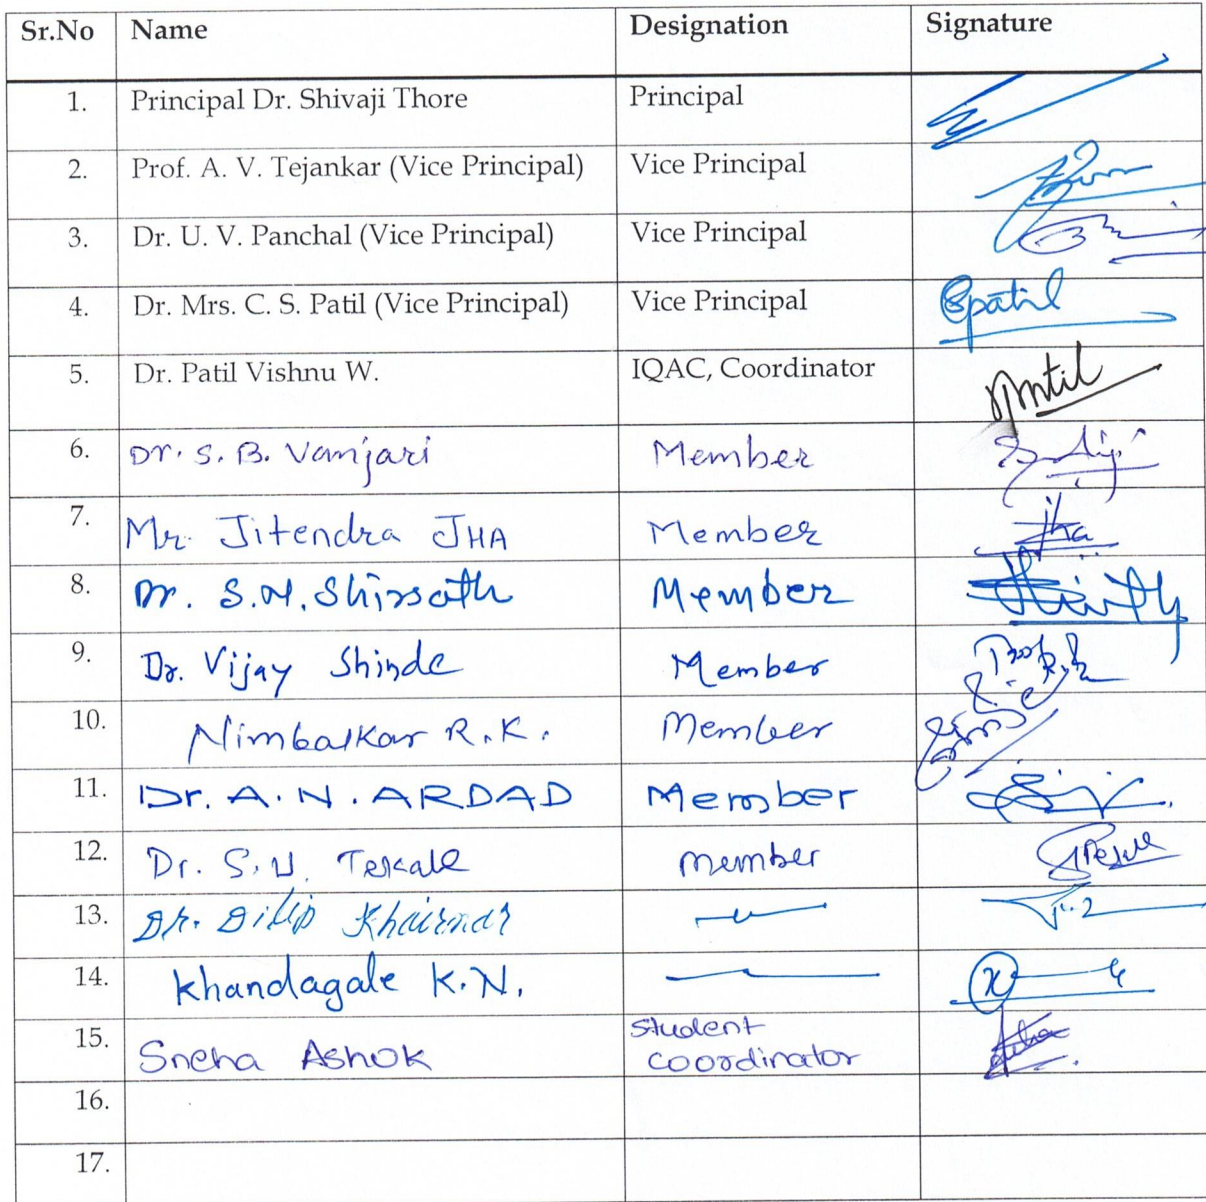 Sr.No Name Designation Signature
1. Principal Dr. Shivaji Thore Principal
2. Prof. A. V. Tejankar (Vice Principal) Vice Principal
3. Dr. U. V. Panchal (Vice Principal) Vice Principal
4. Dr. Mrs. C. S. Patil (Vice Principal) Vice Principal Cspatil
5. Dr. Patil Vishnu W. IQAC, Coordinator
6. Dr. S. B. Vanjari Member
7. Mr. Jitendra JHA Member Jha
8. Dr. S.N. Shirsath Member
9. Dr. Vijay Shinde Member
10. Nimbalkar R.K. Member
11. Dr. A. N. ARDAD Member
12. Dr. S. U. Tekale Member
13. Dr. Dilip Khairnar
14. Khandagale K.N.
15. Sneha Ashok Student
coordinator
16.
17.